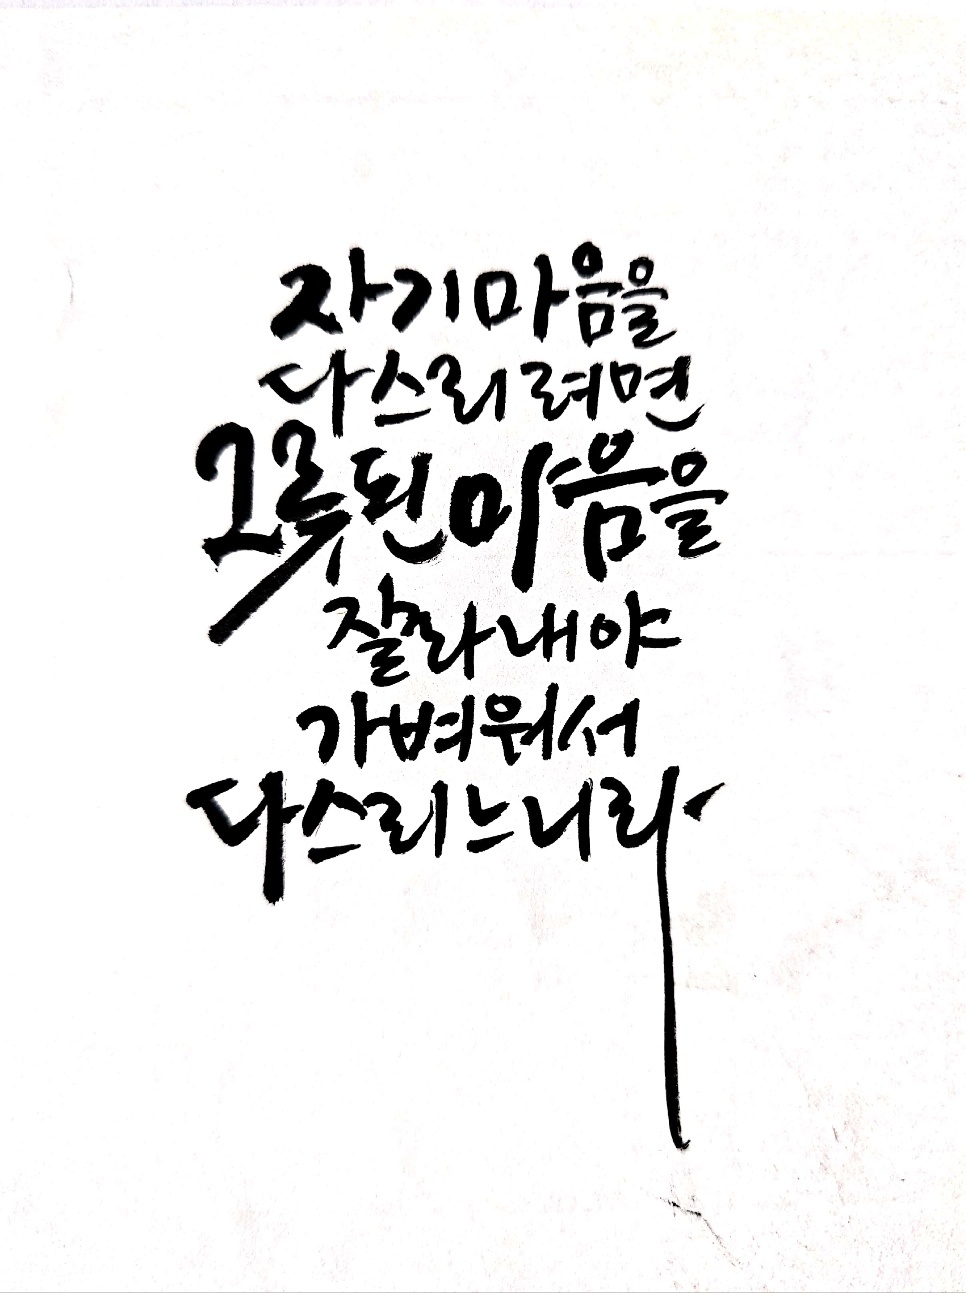 자기마음을
다스리려면
그릇된마음을
잘라내야
가벼워서
다스리느니라